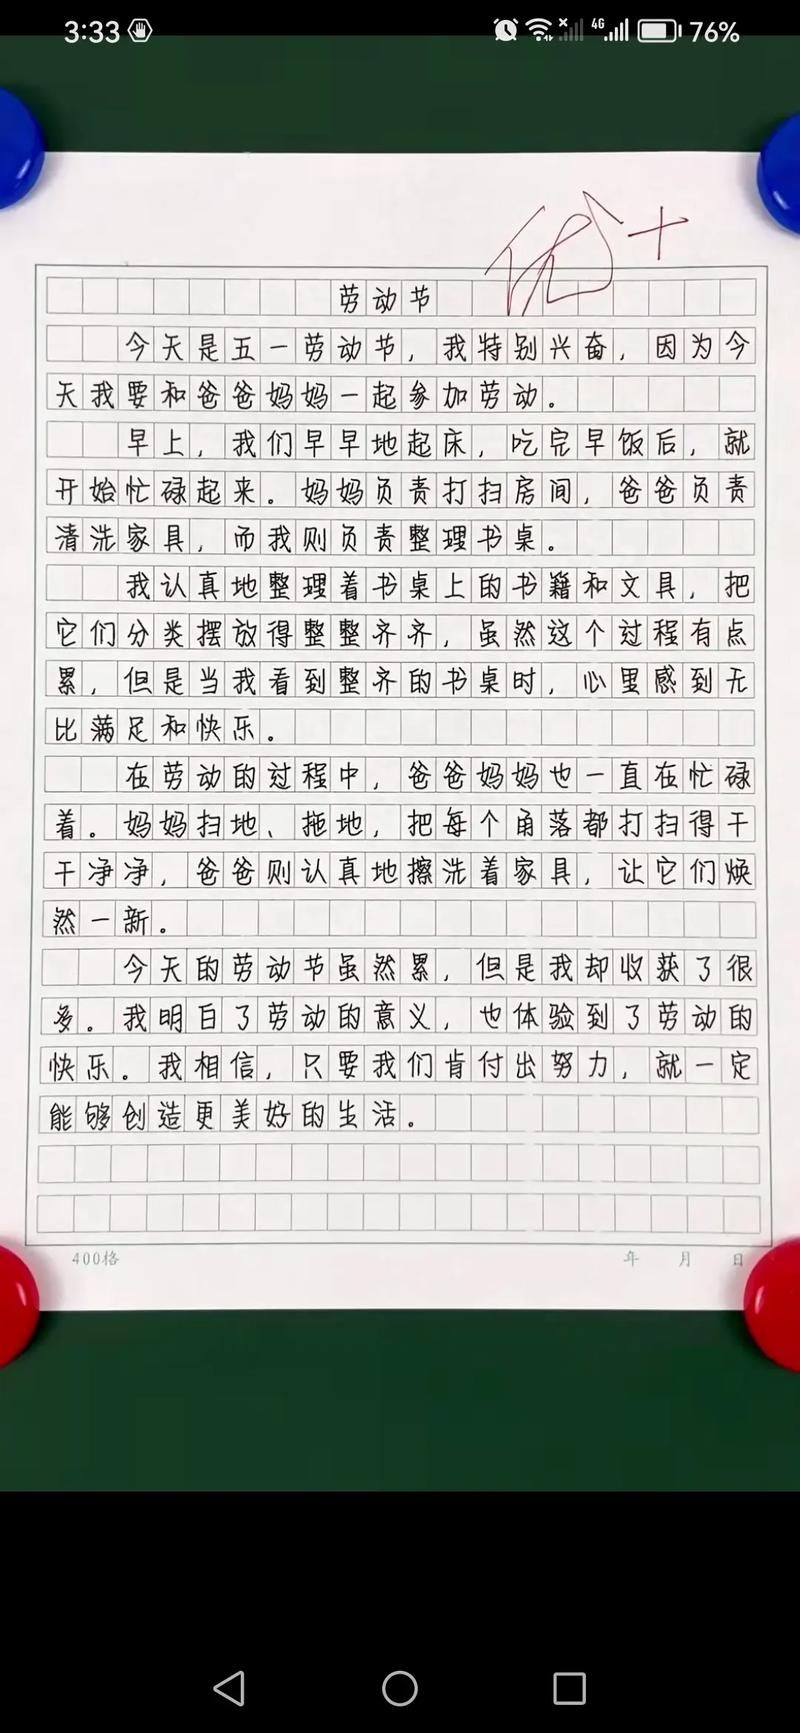 3:33
4G
76%
优+
劳动节
今天是五一劳动节，我特别兴奋，因为今
天我要和爸爸妈妈一起参加劳动。
早上，我们早早地起床，吃完早饭后，就
开始忙碌起来。妈妈负责打扫房间，爸爸负责
清洗家具，而我则负责整理书桌。
我认真地整理着书桌上的书籍和文具，把
它们分类摆放得整整齐齐，虽然这个过程有点
累，但是当我看到整齐的书桌时，心里感到无
比满足和快乐。
在劳动的过程中，爸爸妈妈也一直在忙碌
着。妈妈扫地、拖地，把每个角落都打扫得干
干净净，爸爸则认真地擦洗着家具，让它们焕
然一新。
今天的劳动节虽然累，但是我却收获了很
多。我明白了劳动的意义，也体验到了劳动的
快乐。我相信，只要我们肯付出努力，就一定
能够创造更美好的生活。
400格
年 月 日